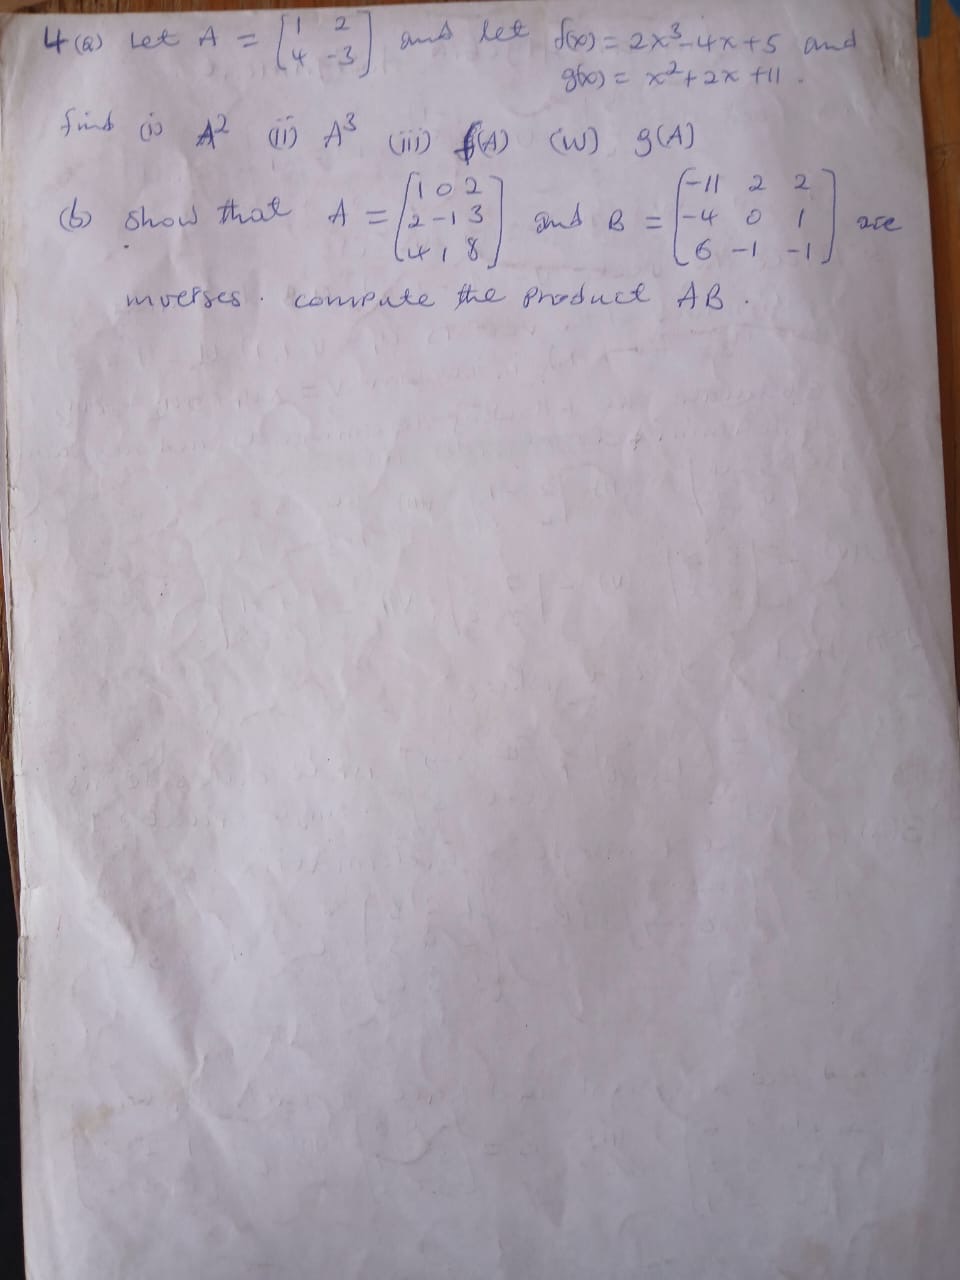 4(a) Let A = [1 2 and let f(x) = 2x³-4x+5 and
4 -3] g(x) = x²+2x+11.
find (i) A² (ii) A³ (iii) f(A) (iv) g(A)
(b) show that A = [1 0 2 and B = [-11 2 2 are
2 -1 3 -4 0 1
4 1 8] 6 -1 -1]
inverses. compute the product AB.